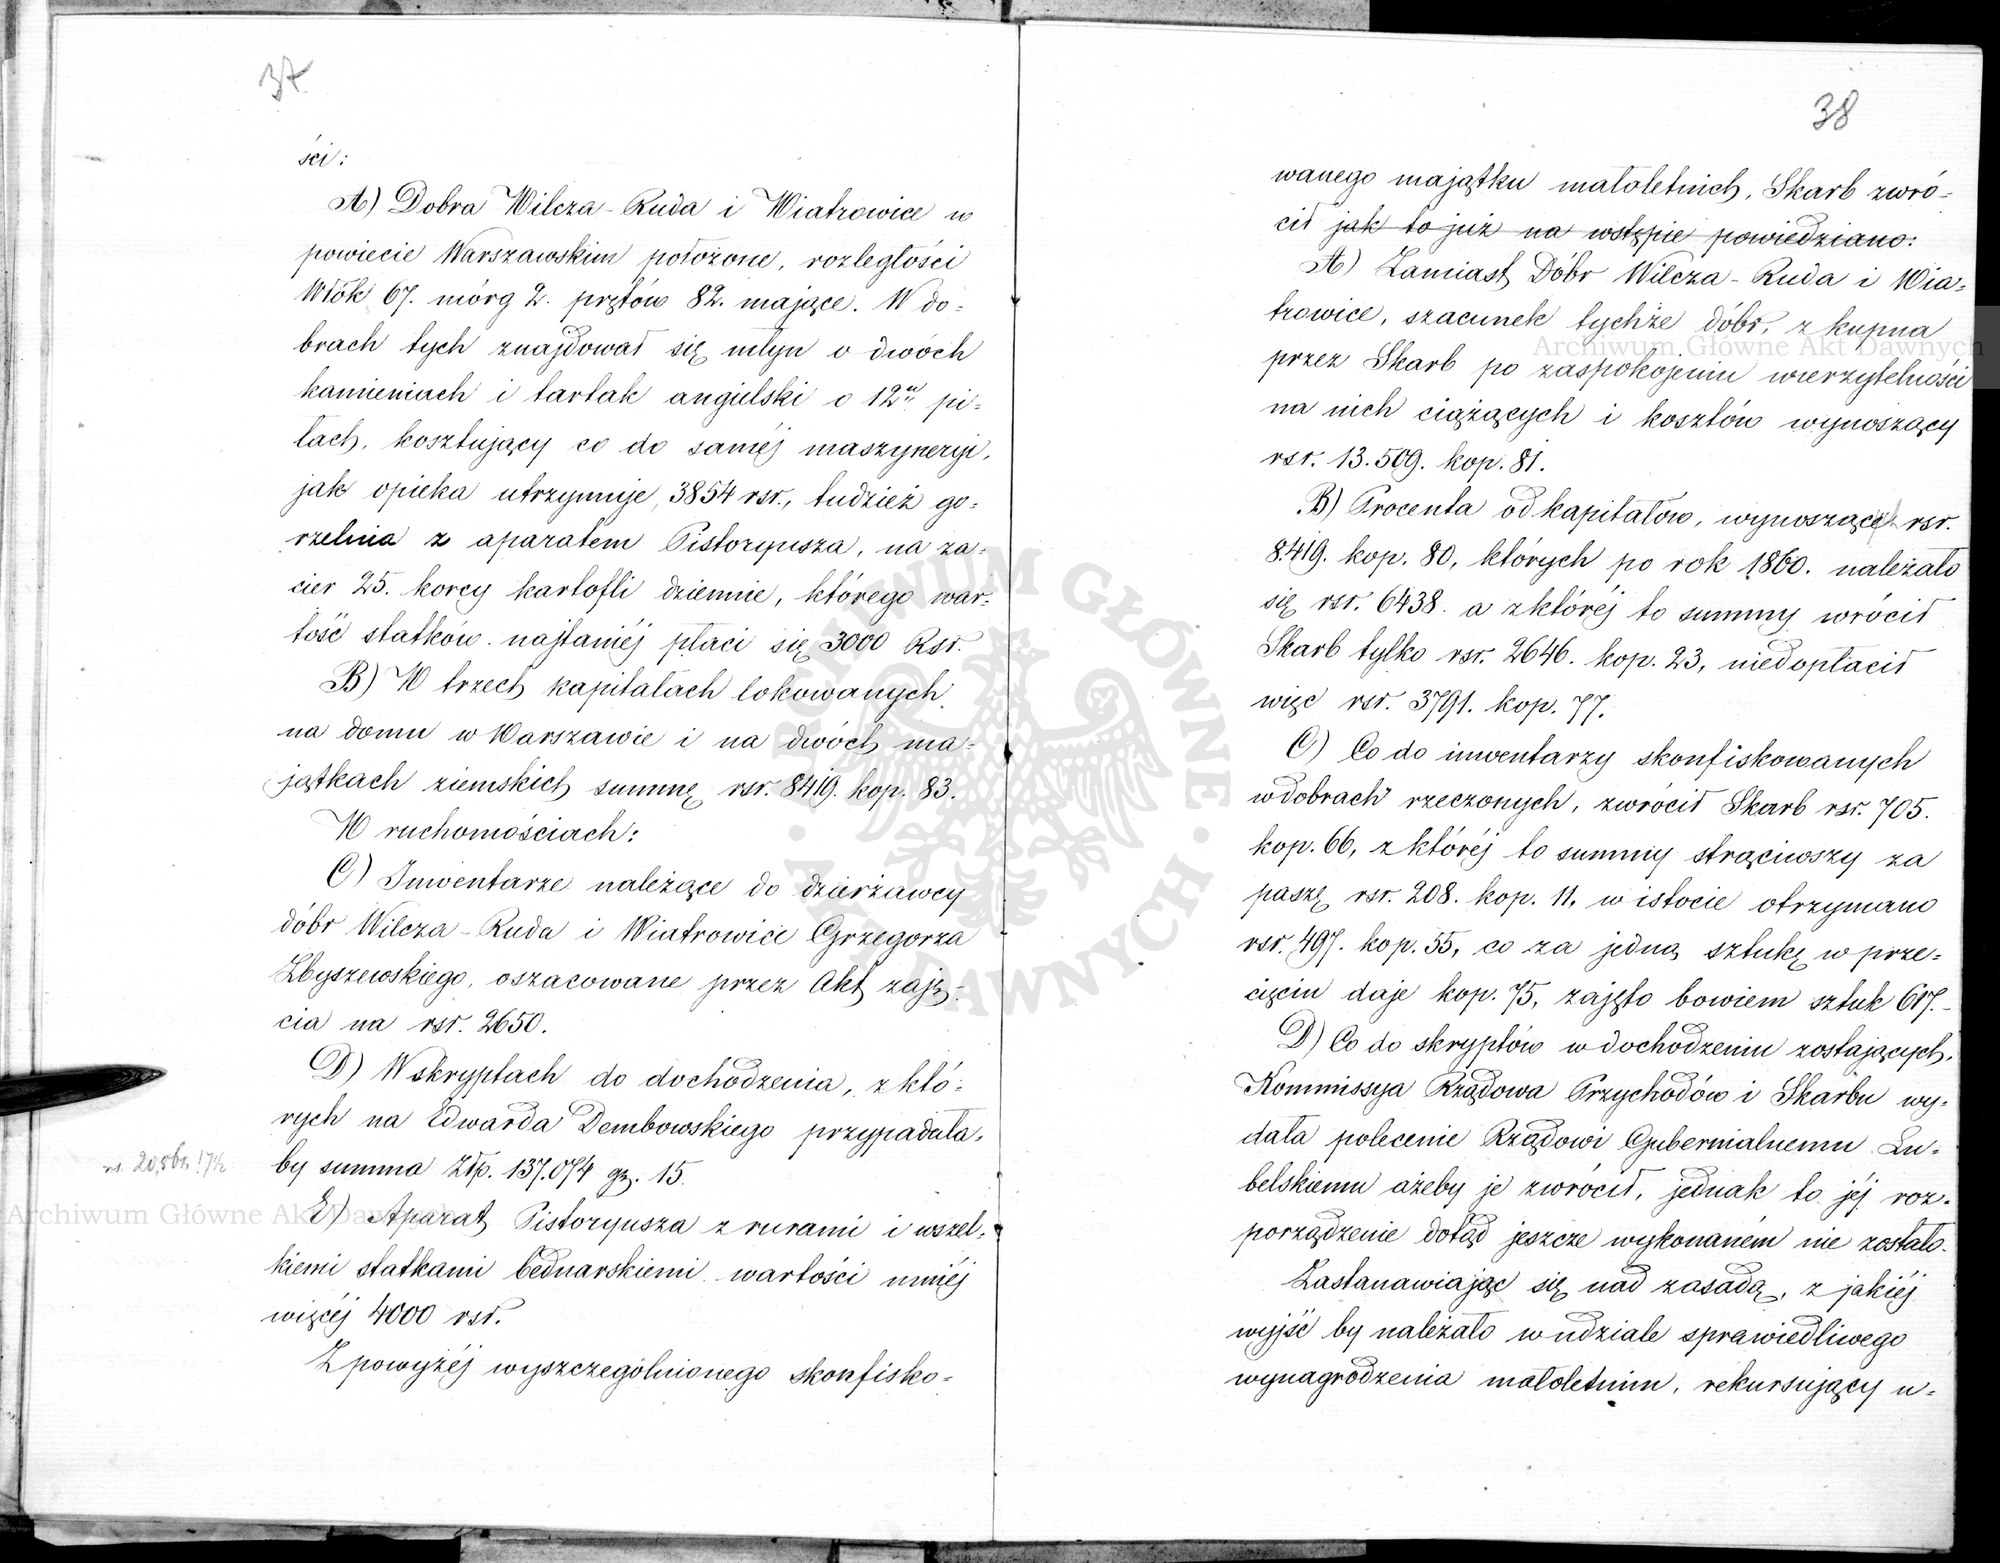 37
ści:
A) Dobra Wilcza-Ruda i Wiatrowice w
powiecie Warszawskim położone, rozległości
Włók 67. mórg 2. prętów 82. mające. W do-
brach tych znajdował się młyn o dwóch
kamieniach i tartak angielski o 12u pi-
łach, kosztujący co do saméj maszyneryi,
jak opieka utrzymuje, 3854 rsr., tudzież go-
rzelnia z aparatem Pistoryusza, na za-
cier 25. korcy kartofli dziennie, którego war-
tość statków najtaniéj płaci się 3000 Rsr.
B) W trzech kapitałach lokowanych,
na domu w Warszawie i na dwóch ma-
jątkach ziemskich summę rsr. 8419. kop. 83.
W ruchomościach:
C) Inwentarze należące do dzierżawcy
dóbr Wilcza-Ruda i Wiatrowice Grzegorza
Zbyszewskiego, oszacowane przez Akt zaję-
cia na rsr. 2650.
D) W skryptach do dochodzenia, z któ-
rych na Edwarda Dembowskiego przypadała-
by summa Złp. 137.074 gr. 15.
E) Aparat Pistoryusza z rurami i wszel-
kiemi statkami bednarskiemi wartości mniéj
więcéj 4000 rsr.
Z powyżéj wyszczególnionego skonfisko-
38
wanego majątku małoletnich, Skarb zwró-
cił jak to już na wstępie powiedziano:
A) Zamiast Dóbr Wilcza-Ruda i Wia-
trowice, szacunek tychże dóbr, z kupna
przez Skarb po zaspokojeniu wierzytelności
na nich ciążących i kosztów wynoszący
rsr. 13.509. kop. 81.
B) Procenta od kapitałów, wynoszących rsr.
8419. kop. 80, których po rok 1860. należało
się rsr. 6438. a z któréj to summy wrócił
Skarb tylko rsr. 2646. kop. 23, niedopłacił
więc rsr. 3791. kop. 77.
C) Co do inwentarzy skonfiskowanych
w dobrach rzeczonych, zwrócił Skarb rsr. 705.
kop. 66, z któréj to summy strąciwszy za
paszę rsr. 208. kop. 11, w istocie otrzymano
rsr. 497. kop. 55, co za jedną sztukę w prze-
cięciu daje kop. 75, zajęto bowiem sztuk 617.
D) Co do skryptów w dochodzeniu zostających,
Kommissya Rządowa Przychodów i Skarbu wy-
dała polecenie Rządowi Gubernialnemu Lu-
belskiemu ażeby je zwrócił, jednak to jéj roz-
porządzenie dotąd jeszcze wykonaném nie zostało.
Zastanawiając się nad zasadą, z jakiéj
wyjść by należało w udziale sprawiedliwego
wynagrodzenia małoletnim, rekursujący u-
Archiwum Główne Akt Dawnych
Archiwum Główne Akt Dawnych
ARCHIWUM GŁÓWNE · AKT DAWNYCH ·